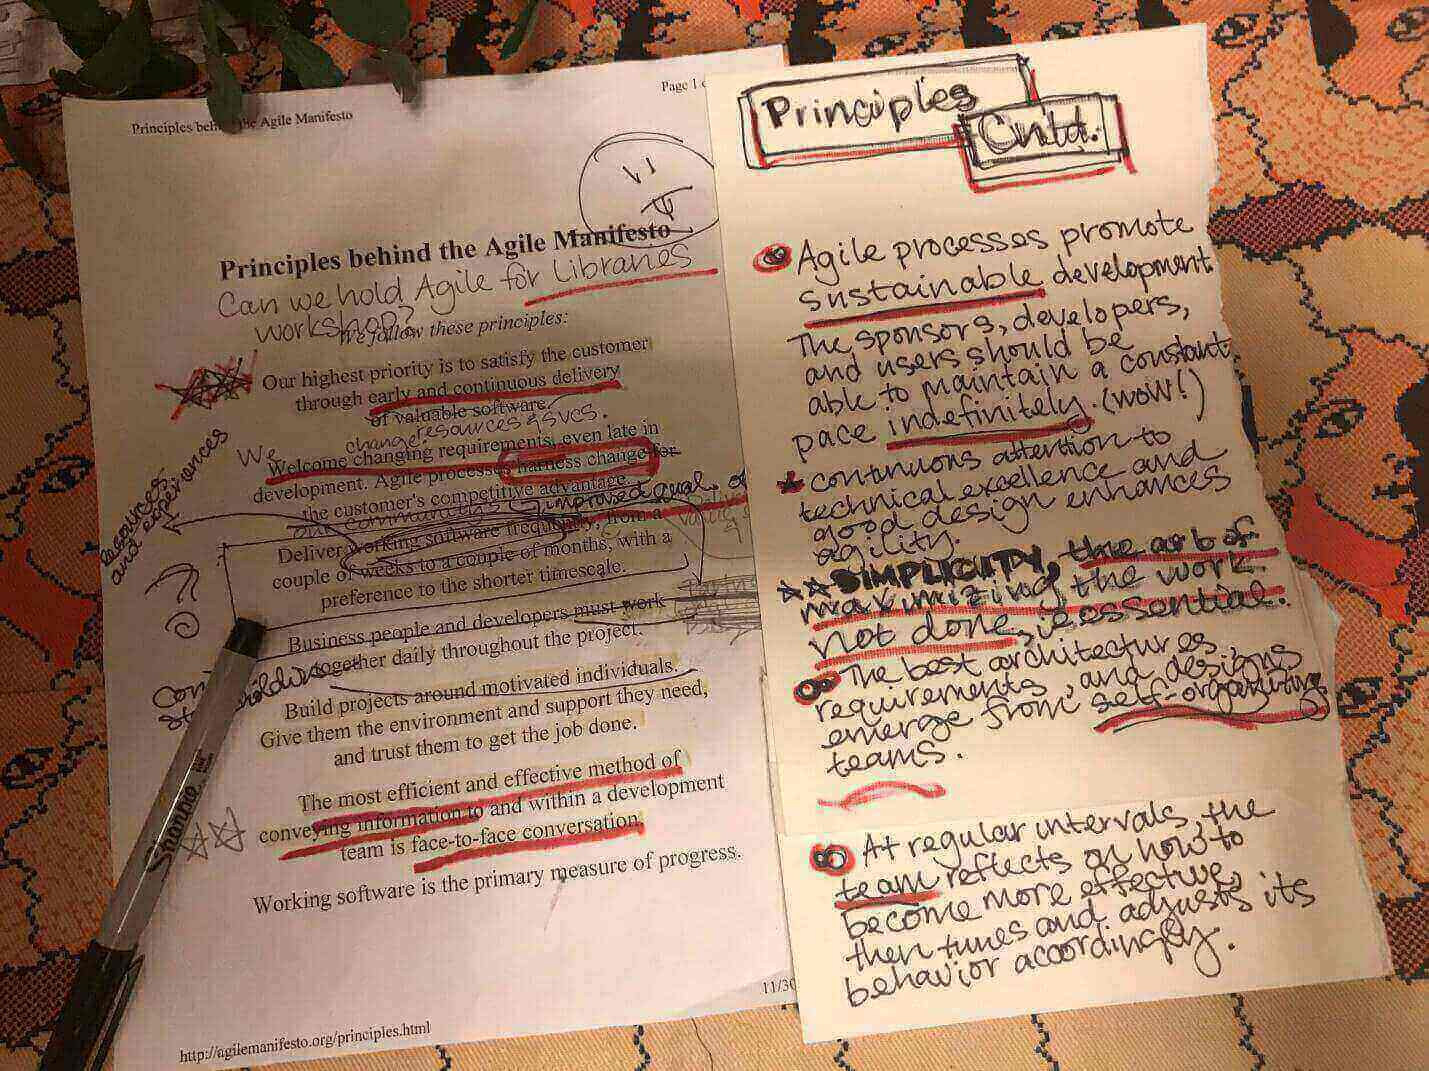 Principles behind the Agile Manifesto
Page 1
Principles behind the Agile Manifesto
Can we hold Agile for Libraries
workshop?
We follow these principles:
Our highest priority is to satisfy the customer
through early and continuous delivery
of valuable software.
We change resources & svcs.
Welcome changing requirements, even late in
development. Agile processes harness change for
the customer's competitive advantage.
our community's improved qual. of
Deliver working software frequently, from a
couple of weeks to a couple of months, with a
preference to the shorter timescale.
resources
and experiences
Business people and developers must work
together daily throughout the project.
Build projects around motivated individuals.
Give them the environment and support they need,
and trust them to get the job done.
The most efficient and effective method of
conveying information to and within a development
team is face-to-face conversation.
Working software is the primary measure of progress.
http://agilemanifesto.org/principles.html
11/30
Sharpie
Principles
Cntd.
Agile processes promote
sustainable development
The sponsors, developers,
and users should be
able to maintain a constant
pace indefinitely. (wow!)
continuous attention to
technical excellence and
good design enhances
agility.
SIMPLICITY, the art of
maximizing the work
not done, is essential.
The best architectures,
requirements, and designs
emerge from self-organizing
teams.
At regular intervals, the
team reflects on how to
become more effective,
then tunes and adjusts its
behavior accordingly.